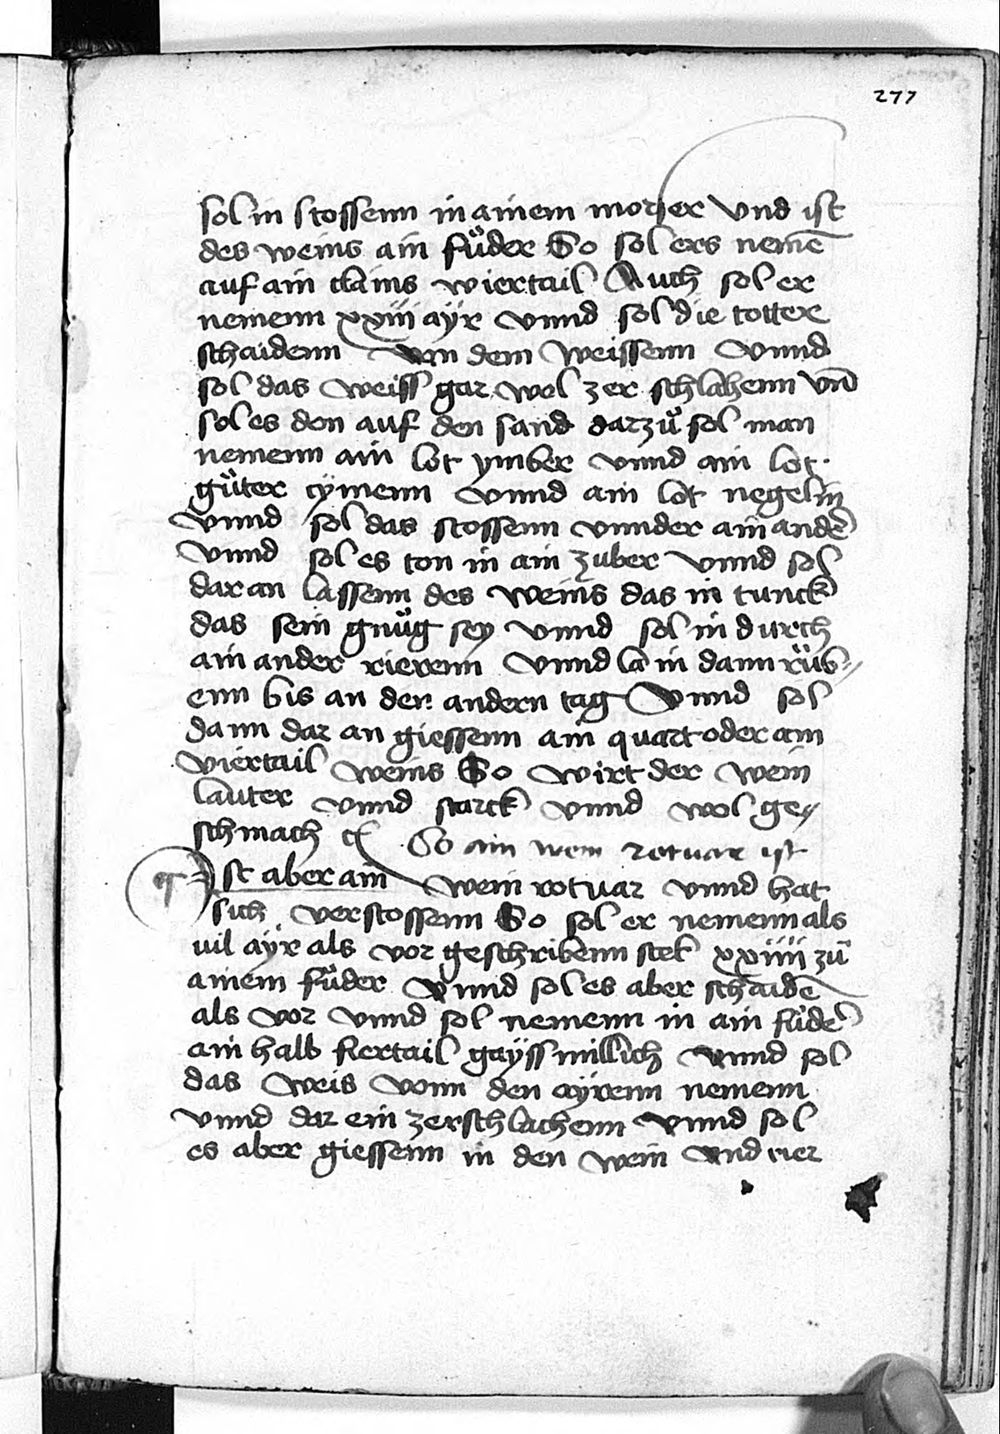 277
sol in stossenn in ainem morser vnd ist
des weins ain fůder So sol ers nemē
auf ain clains viertail Auch sol er
nemenn xxiiii ayr vnnd sol die totter
schaidenn von dem Weissenn vnnd
sol das Weiss gar wol zer schlahenn vn̄
sol es don auf den sand darzů sol man
nemenn ain lot ymber vnnd ain lot
gůter cymenn vnnd ain lot negelin
vnnd sol das stossenn vnnder ain andē
vnnd sol es ton in ain zuber vnnd sol
dar an lassenn des Weins das in tunck
das sein gnůg sey vnnd sol in durch
ain ander rierenn vnnd la in dann růb//
enn bis an den andern tag vnnd sol
dann dar an giessenn ain quart oder ain
viertail weins So wirt der wein
lauter vnnd starck vnnd wol ge//
schmach So ain wein rotuar ist
Ist aber ain wein rotuar vnnd hat
sich verstossenn So sol er nemenn als
uil ayr als vor geschribenn stet xxiiii zů
ainem fůder vnnd sol es aber schaidē
als vor vnnd sol nemenn in ain fůdē
ain halb fiertail gayss millich vnnd sol
das Weis vonn den ayrenn nemenn
vnnd dar ein zerschlachenn vnnd sol
es aber giessenn in den wein vnd rier